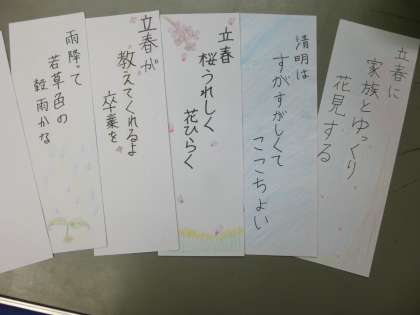 立春に
家族とゆっくり
花見する
清明は
すがすがしくて
ここちよい
立春
桜うれしく
花ひらく
立春が
教えてくれるよ
卒業を
雨降って
若草色の
穀雨かな